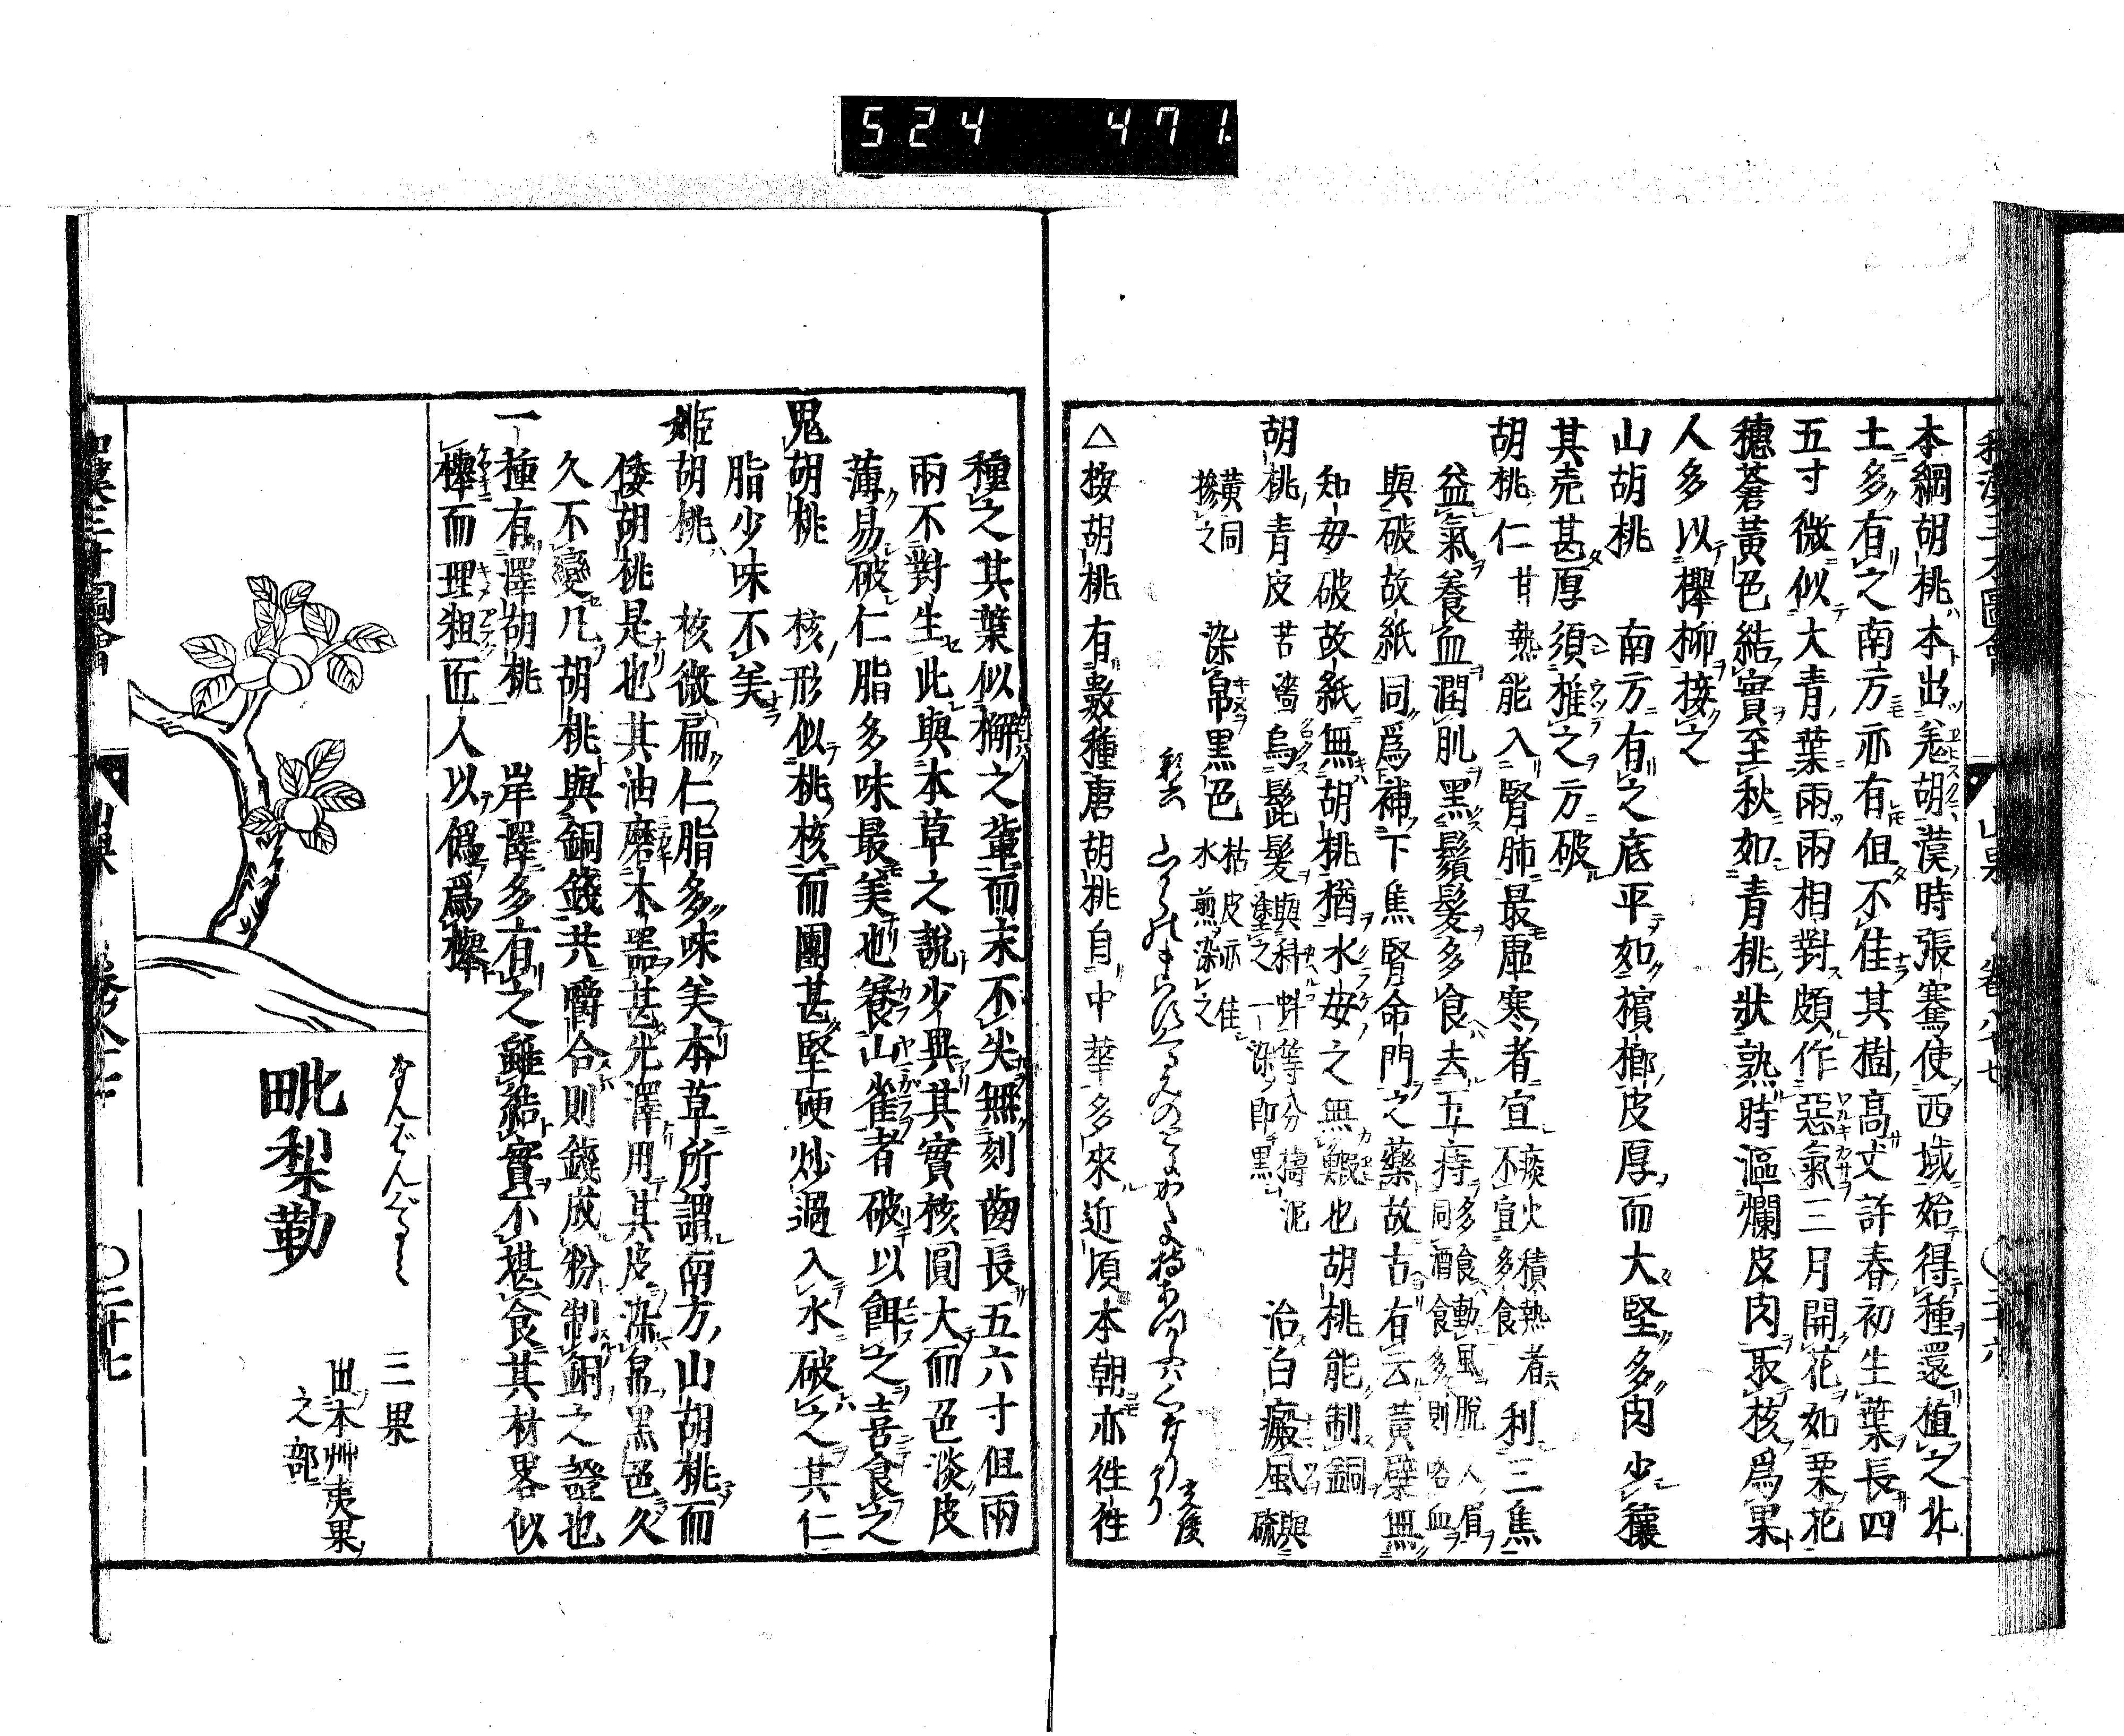 524 471.
本綱胡桃本出羗胡漢時張騫使西域始得種還植之北
土多有之南方亦有但不佳其樹高丈許春初生葉長四
五寸微似大青葉兩兩相對頗作惡氣三月開花如栗花
穗蒼黃色結實至秋如青桃狀熟時漚爛皮肉取核爲果
人多以櫸柳接之
山胡桃 南方有之底平如檳榔皮厚而大堅多肉少穰
其売甚厚須椎之方破
胡桃仁 甘熱 能入腎肺最虛寒者宜 痰火積熱者不宜多食 利三焦
益氣養血潤肌黑鬚髮多食去五痔 多食動風脫人眉同酒食多則咯血
與破故紙同爲補下焦腎命門之藥故古有云黃蘗無
知母破故紙無胡桃猶水母之無鰕也胡桃能制銅
胡桃青皮 苦濇 烏髭髮 與科蚪等分擣泥塗之一染即黑 治白癜風 與硫
黃同摻之 染帛黑色 枯皮亦佳水煎染之
△按胡桃有數種唐胡桃自中華多來近頃本朝亦徃徃
種之其葉似檞之輩而末不尖無刻齒長五六寸但兩
兩不對生此與本草之說少異其實核圓大而色淡皮
薄易破仁脂多味最美也養山雀者破以餌之喜食之
鬼胡桃 核形似桃核而團甚堅硬炒過入水破之其仁
脂少味不美
姬胡桃 核微扁仁脂多味美本草所謂南方山胡桃而
倭胡桃是也其油磨木噐甚光澤用其皮染帛黑色久
久不變凡胡桃與銅錢共嚼合則錢成粉制銅之證也
一種有澤胡桃 岸澤多有之雖結實不堪食其材畧似
櫸而理粗匠人以僞爲櫸
和漢三才圖會 山果 卷八十七 〇二十七
毗梨勒
三果
出本艸夷果之部